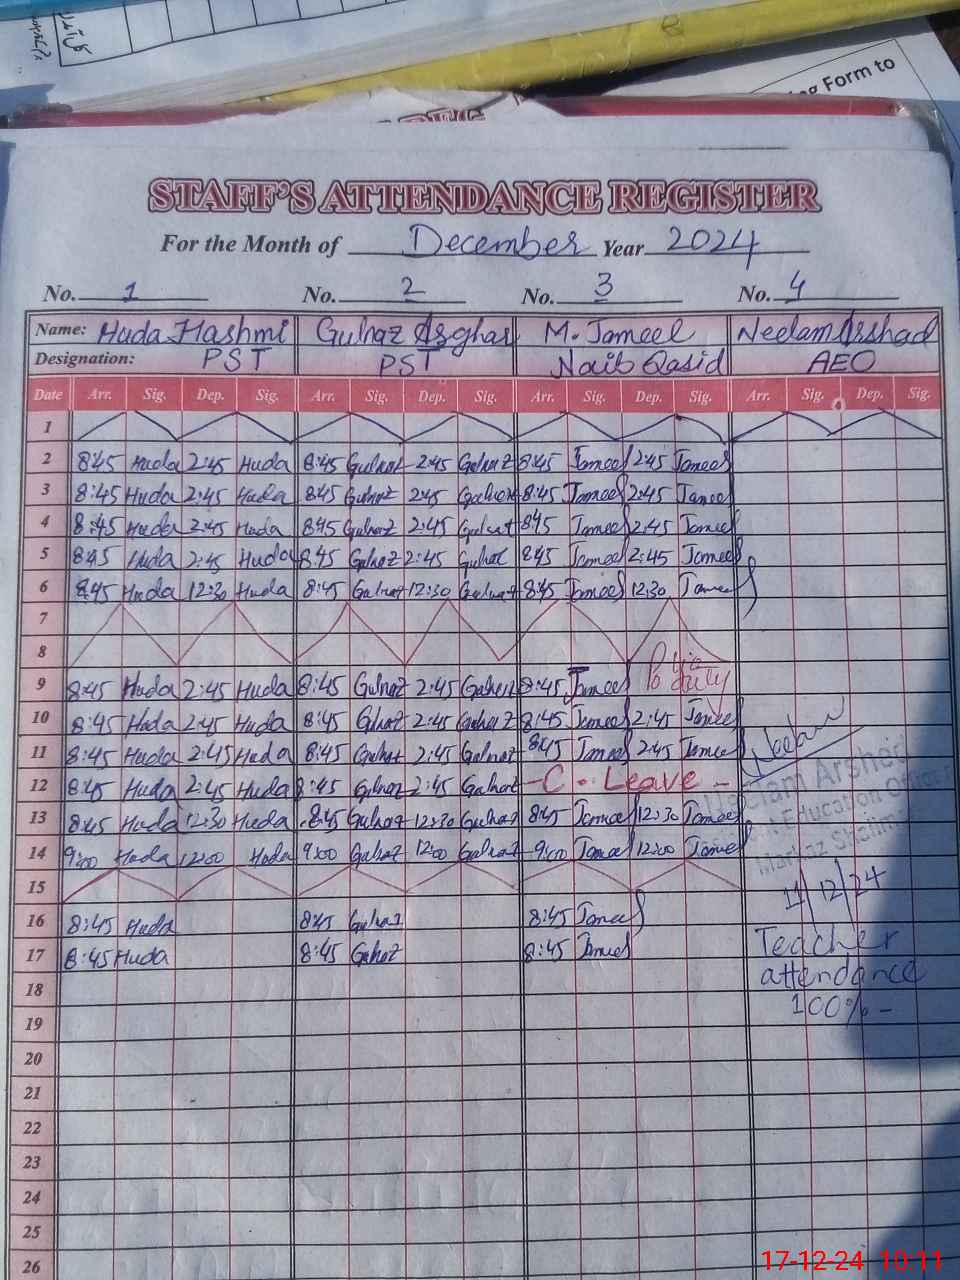 Form to
STAFF'S ATTENDANCE REGISTER
For the Month of December Year 2024
No. 1 No. 2 No. 3 No. 4
Name: Huda Hashmi Gulnaz Asghar M. Jameel Neelam Arshad
Designation: PST PST Naib Qasid AEO
Date Arr. Sig. Dep. Sig. Arr. Sig. Dep. Sig. Arr. Sig. Dep. Sig. Arr. Sig. Dep. Sig.
1
2 8:45 Huda 2:45 Huda 8:45 Gulnaz 2:45 Gulnaz 8:45 Jameel 2:45 Jameel
3 8:45 Huda 2:45 Huda 8:45 Gulnaz 2:45 Gulnaz 8:45 Jameel 2:45 Jameel
4 8:45 Huda 2:45 Huda 8:45 Gulnaz 2:45 Gulnaz 8:45 Jameel 2:45 Jameel
5 8:45 Huda 2:45 Huda 8:45 Gulnaz 2:45 Gulnaz 8:45 Jameel 2:45 Jameel
6 8:45 Huda 12:30 Huda 8:45 Gulnaz 12:30 Gulnaz 8:45 Jameel 12:30 Jameel
7
8
9 8:45 Huda 2:45 Huda 8:45 Gulnaz 2:45 Gulnaz 8:45 Jameel duty
10 8:45 Huda 2:45 Huda 8:45 Gulnaz 2:45 Gulnaz 8:45 Jameel 2:45 Jameel
11 8:45 Huda 2:45 Huda 8:45 Gulnaz 2:45 Gulnaz 8:45 Jameel 2:45 Jameel Neelam
12 8:45 Huda 2:45 Huda 8:45 Gulnaz 2:45 Gulnaz - C. Leave -
Neelam Arshad
13 8:45 Huda 12:30 Huda 8:45 Gulnaz 12:30 Gulnaz 8:45 Jameel 12:30 Jameel
Education Officer
14 9:00 Huda 12:00 Huda 9:00 Gulnaz 12:00 Gulnaz 9:00 Jameel 12:00 Jameel
Markaz Shalimar
15
11/12/24
16 8:45 Huda 8:45 Gulnaz 8:45 Jameel
17 8:45 Huda 8:45 Gulnaz 8:45 Jameel
Teacher
attendance
18
100% -
19
20
21
22
23
24
25
26
17-12-24 10:11